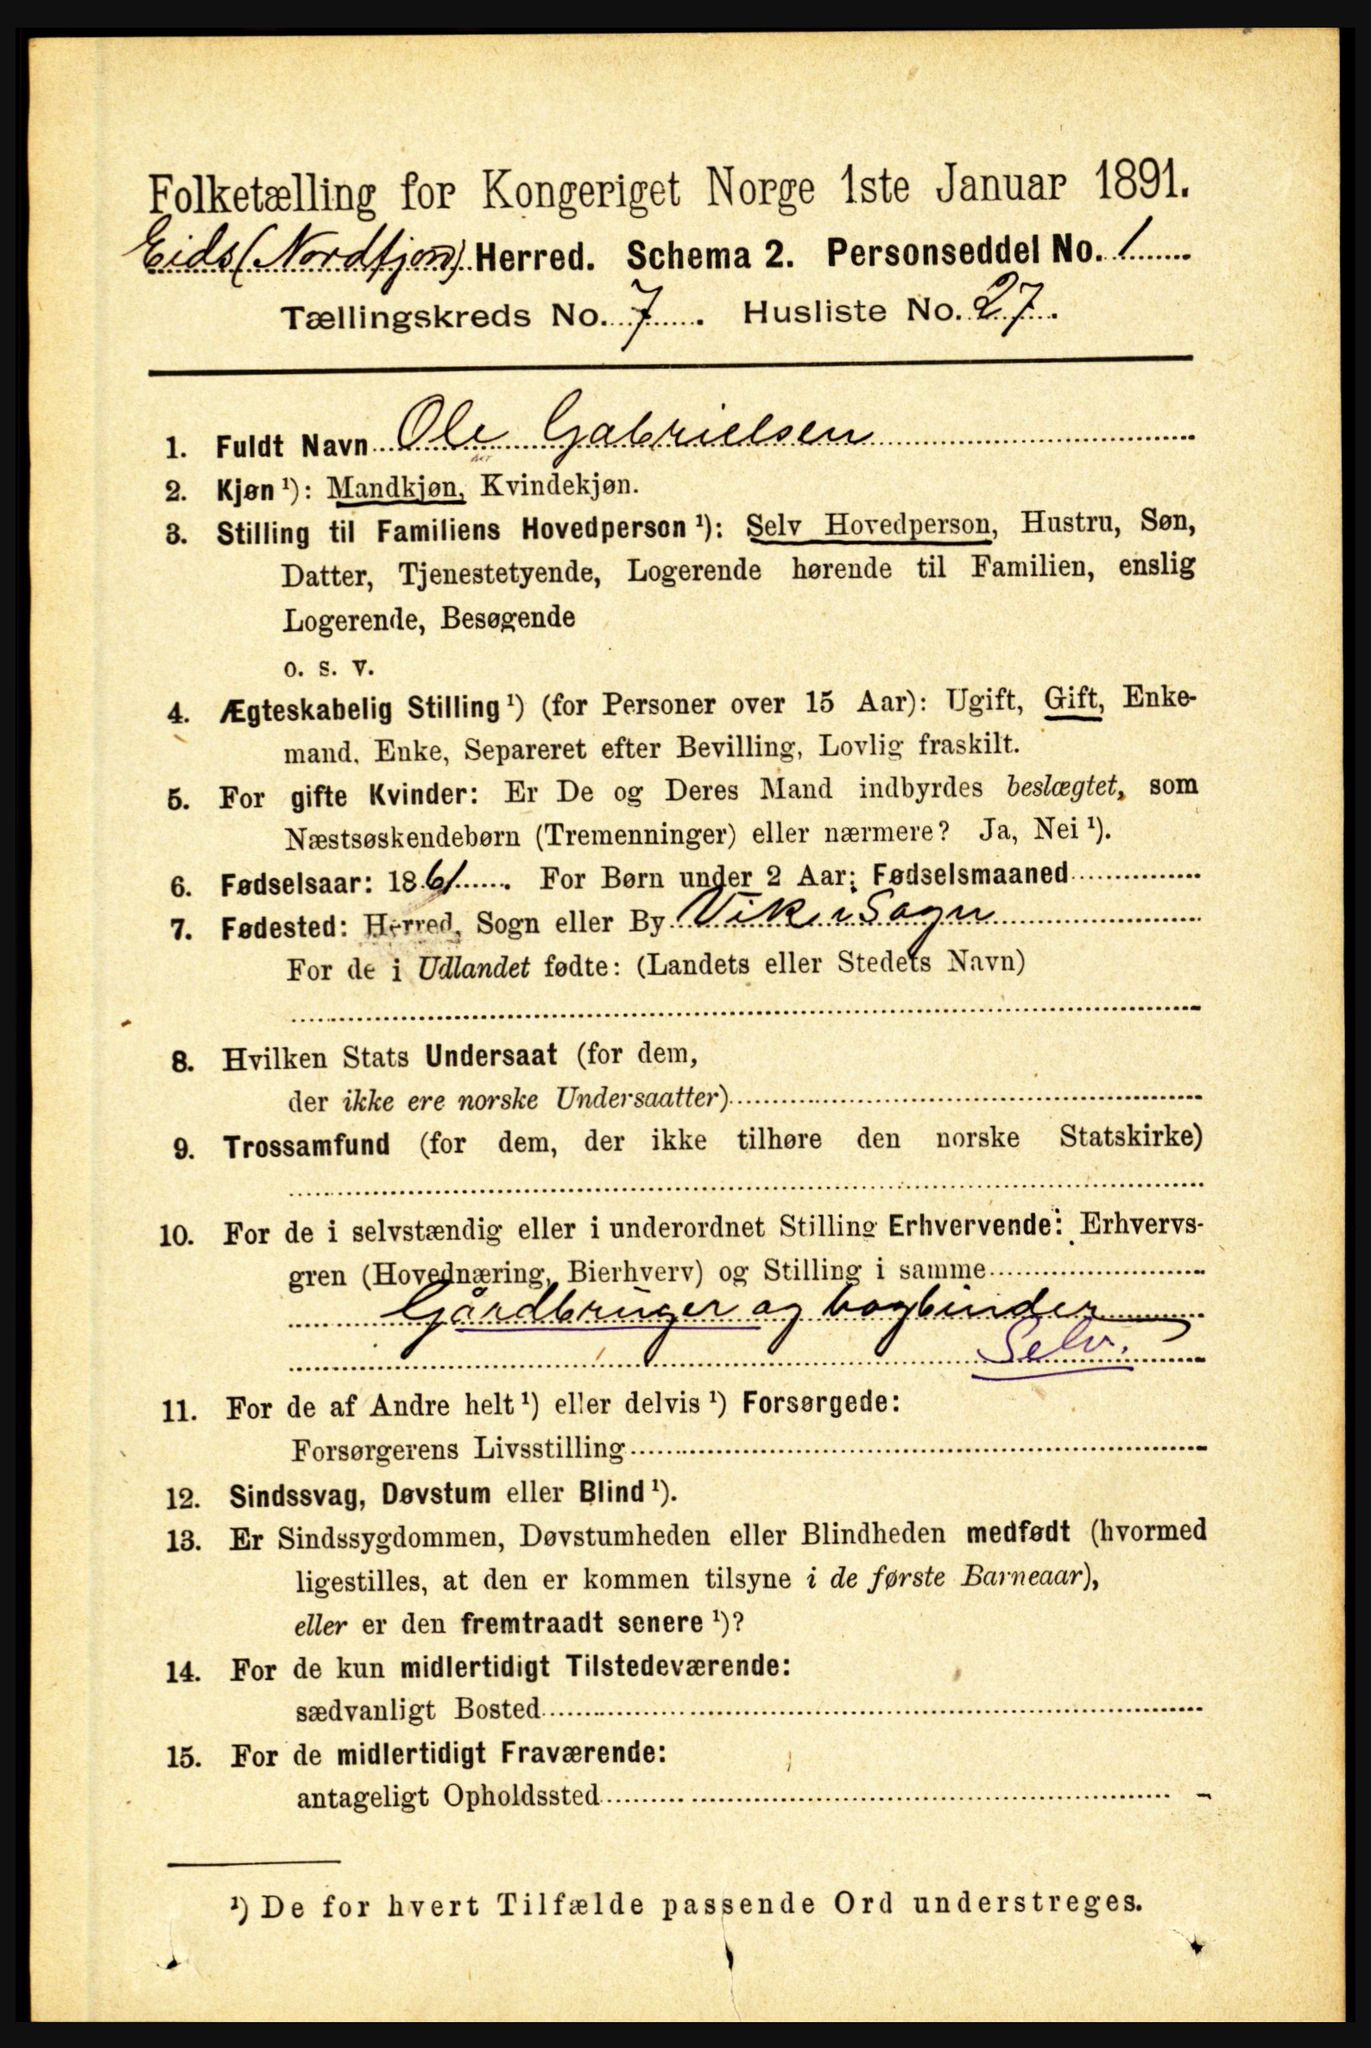 Folketælling for Kongeriget Norge 1ste Januar 1891.
Eids (Nordfjord) Herred. Schema 2. Personseddel No. 1
Tællingskreds No. 7. Husliste No. 27.
1. Fuldt Navn Ole Gabrielsen
2. Kjøn ¹): Mandkjøn, Kvindekjøn.
3. Stilling til Familiens Hovedperson ¹): Selv Hovedperson, Hustru, Søn,
Datter, Tjenestetyende, Logerende hørende til Familien, enslig
Logerende, Besøgende
o. s. v.
4. Ægteskabelig Stilling ¹) (for Personer over 15 Aar): Ugift, Gift, Enke-
mand, Enke, Separeret efter Bevilling, Lovlig fraskilt.
5. For gifte Kvinder: Er De og Deres Mand indbyrdes beslægtet, som
Næstsøskendebørn (Tremenninger) eller nærmere? Ja, Nei ¹).
6. Fødselsaar: 1861. For Børn under 2 Aar: Fødselsmaaned
7. Fødested: Herred, Sogn eller By Vik i Sogn
For de i Udlandet fødte: (Landets eller Stedets Navn)
8. Hvilken Stats Undersaat (for dem,
der ikke ere norske Undersaatter)
9. Trossamfund (for dem, der ikke tilhøre den norske Statskirke)
10. For de i selvstændig eller i underordnet Stilling Erhvervende: Erhvervs-
gren (Hovednæring, Bierhverv) og Stilling i samme
Gårdbruger og bogbinder
Selv.
11. For de af Andre helt ¹) eller delvis ¹) Forsørgede:
Forsørgerens Livsstilling
12. Sindssvag, Døvstum eller Blind ¹).
13. Er Sindssygdommen, Døvstumheden eller Blindheden medfødt (hvormed
ligestilles, at den er kommen tilsyne i de første Barneaar),
eller er den fremtraadt senere ¹)?
14. For de kun midlertidigt Tilstedeværende:
sædvanligt Bosted
15. For de midlertidigt Fraværende:
antageligt Opholdssted
¹) De for hvert Tilfælde passende Ord understreges.